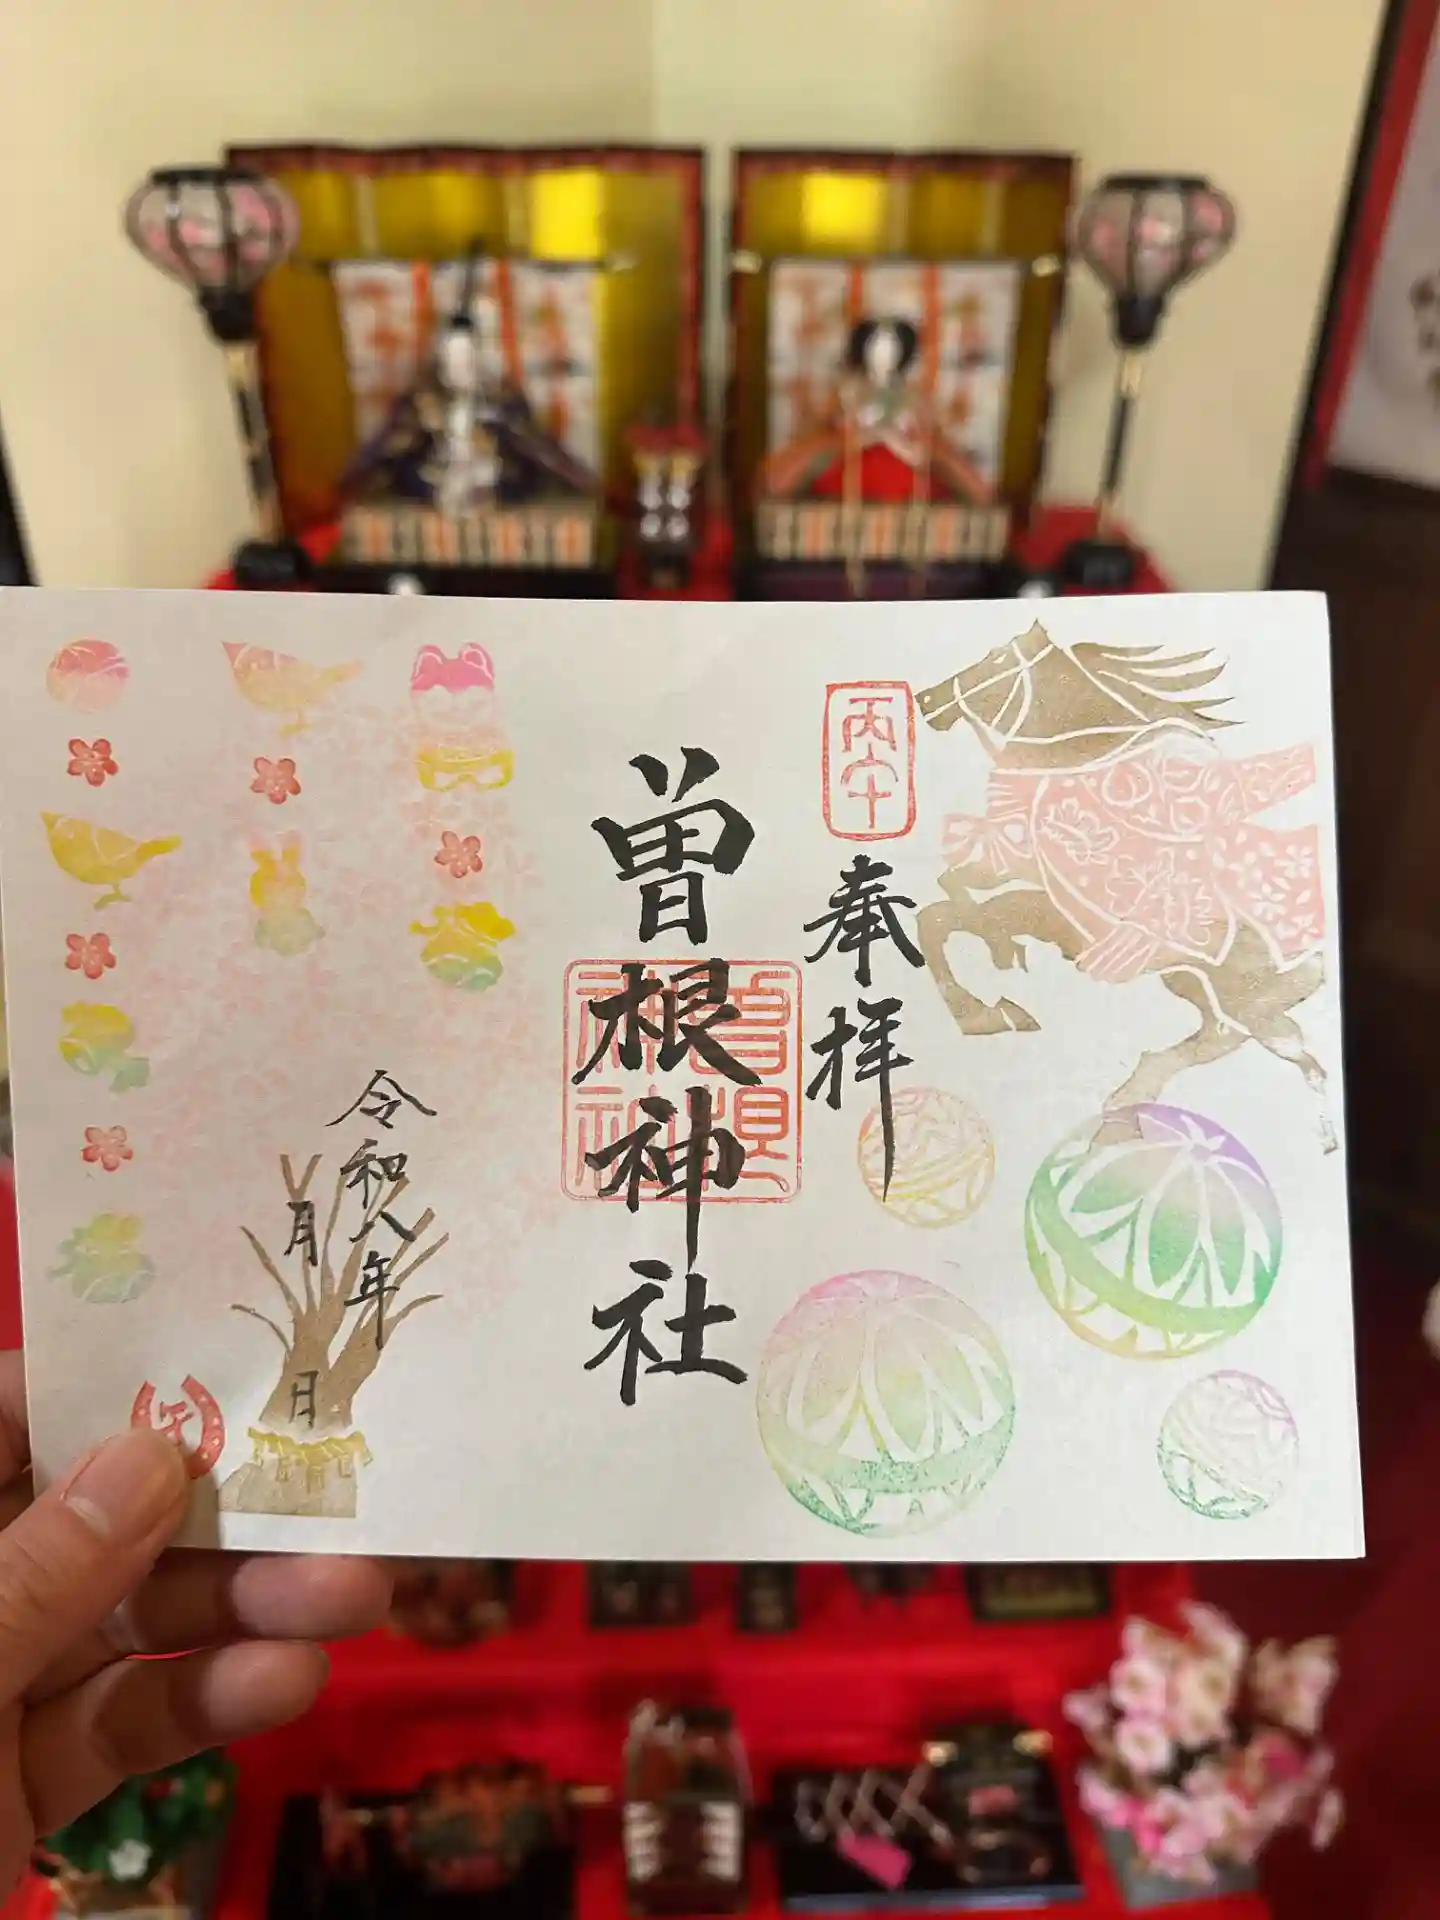 丙午
奉拝
曽根神社
曽根神社
令和八年
月 日
午